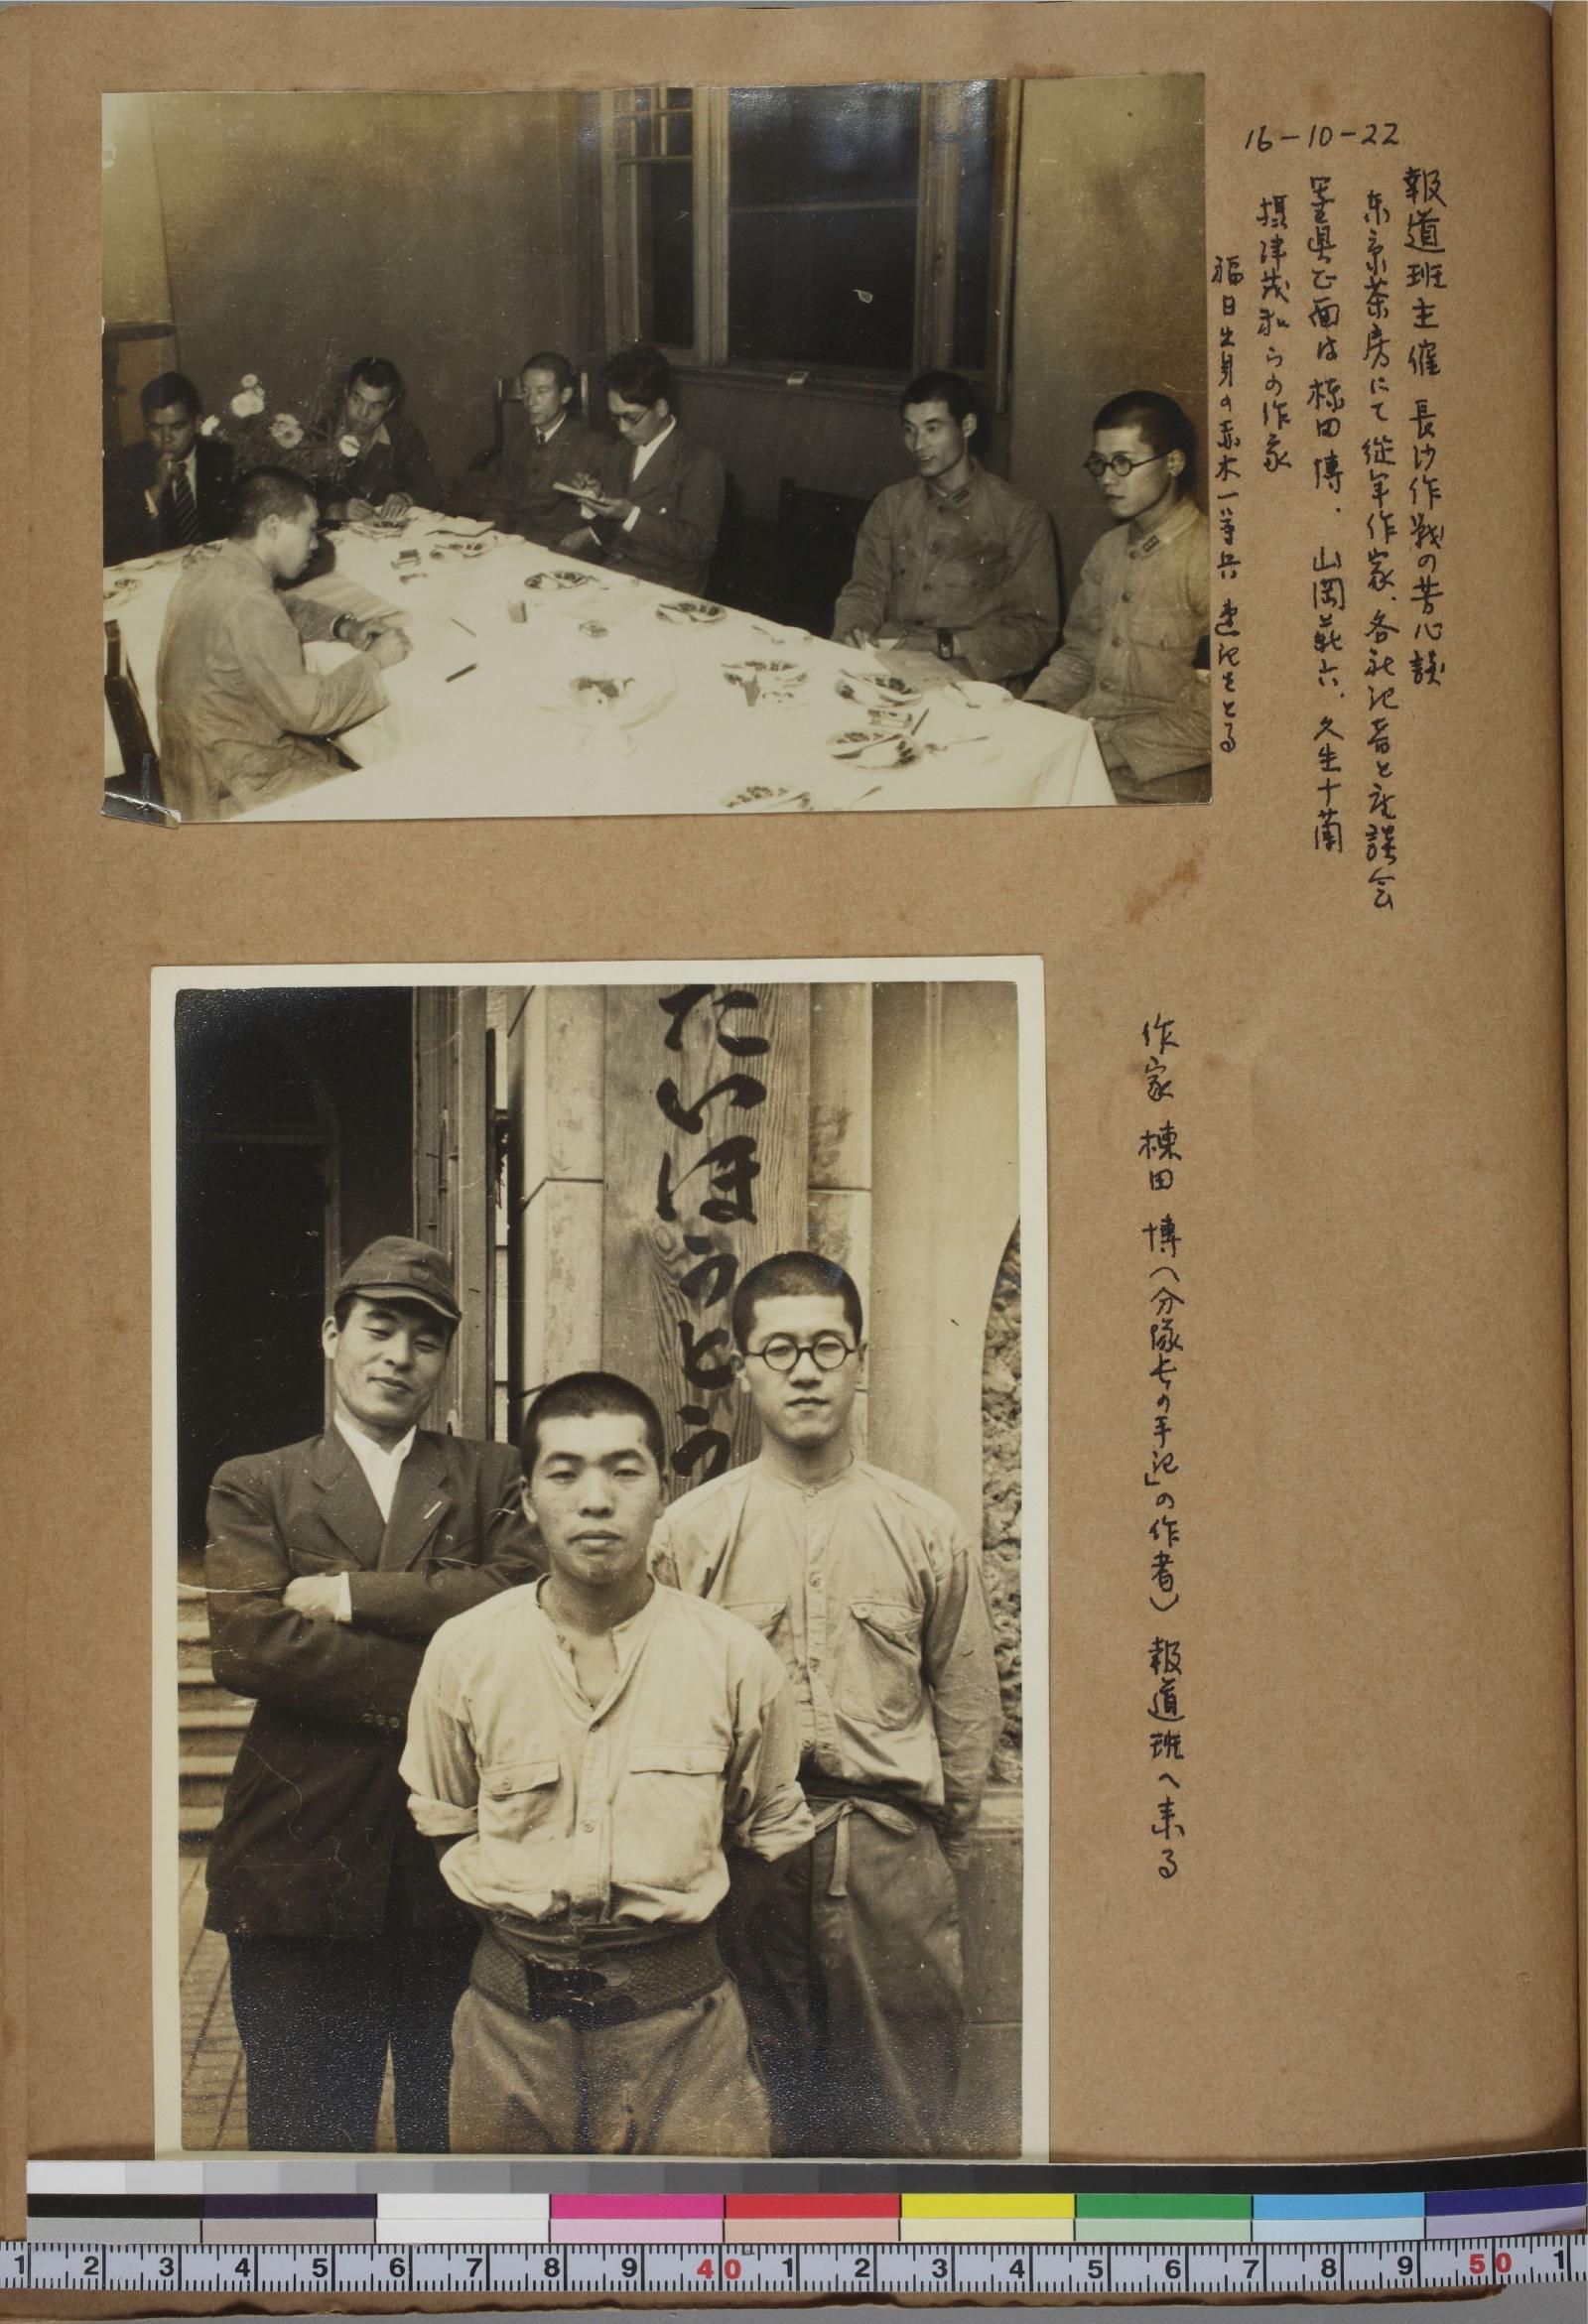 16-10-22
報道班主催 長沙作戦の苦心談
東京茶房にて従軍作家、各社記者と座談会
写真正面は棟田博、山岡荘八、久生十蘭
摂津茂和らの作家
福日出身の赤木一等兵 速記をとる
たいほうどう
作家 棟田 博(「分隊長の手記」の作者) 報道班へ来る
1 2 3 4 5 6 7 8 9 40 1 2 3 4 5 6 7 8 9 50 1